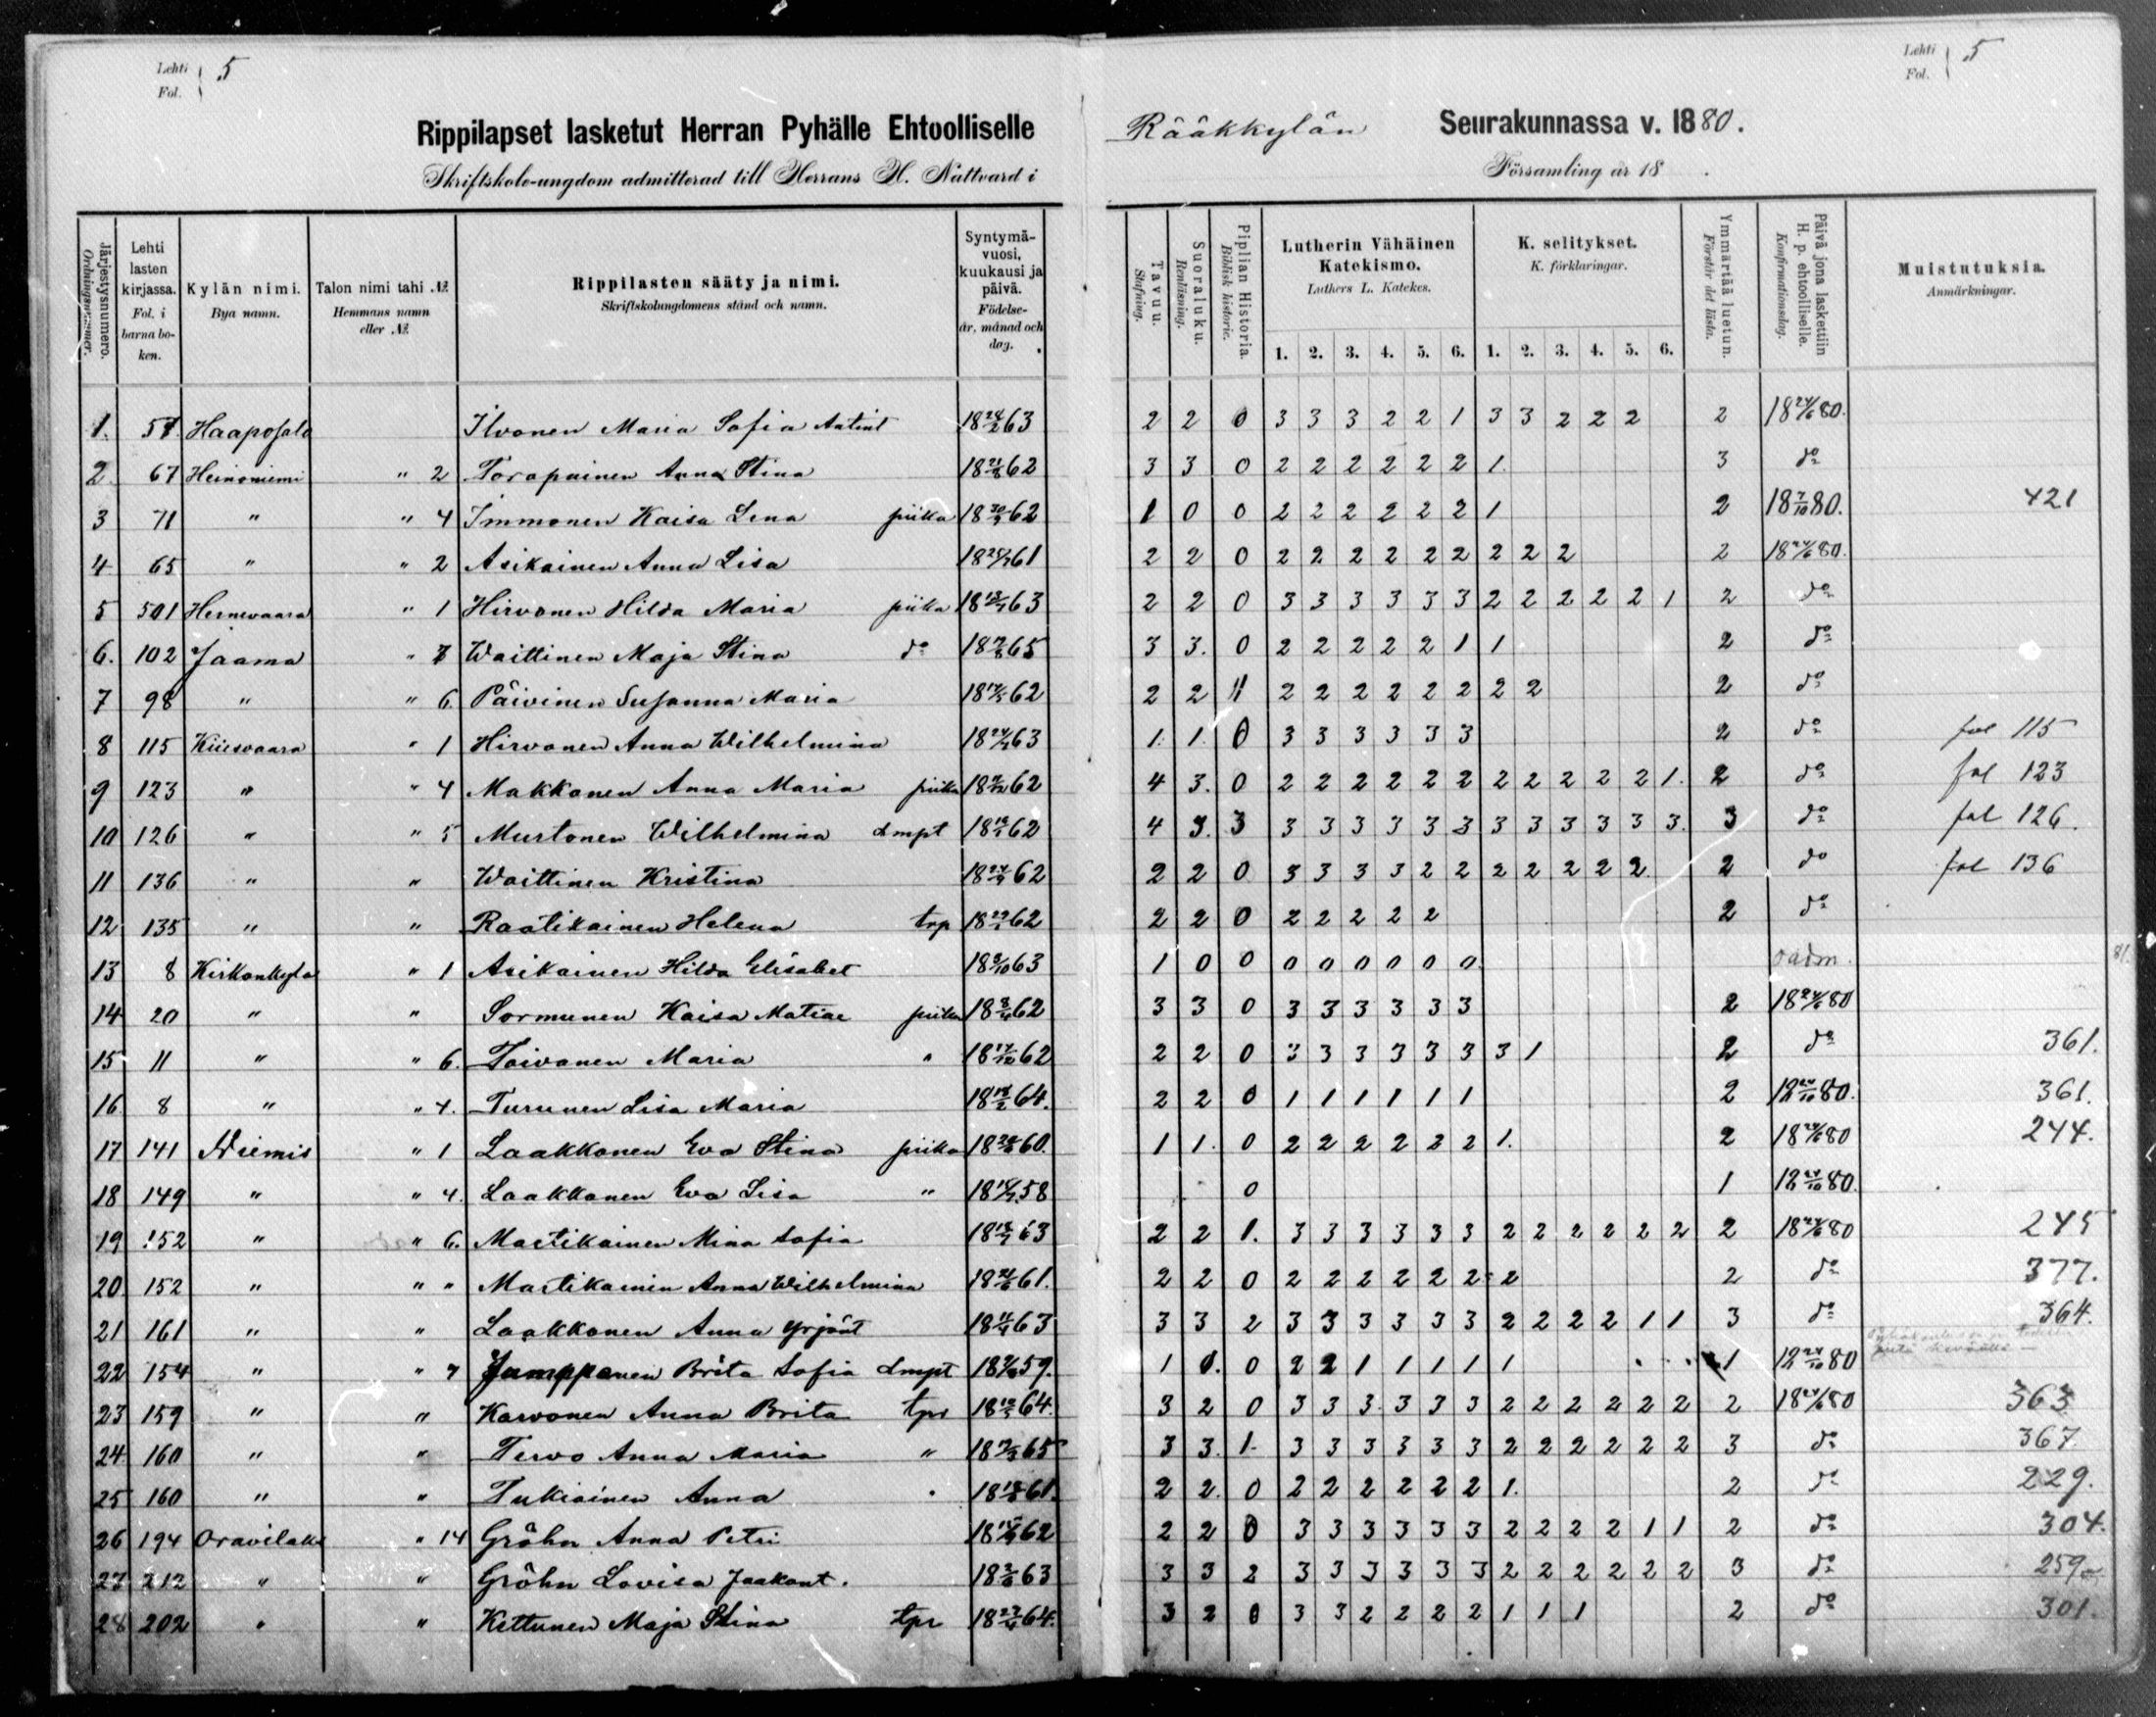 Lehti
Fol. } 5
Lehti
Fol. } 5
Rippilapset lasketut Herran Pyhälle Ehtoolliselle Rääkkylän Seurakunnassa v. 1880.
Skriftskole-ungdom admitterad till Herrans H. Nattvard i Församling år 18 .
Järjestysnumero. Ordningsnummer. | Lehti lasten kirjassa. Fol. i barnaboken. | Kylän nimi. Bya namn. | Talon nimi tahi №. Hemmans namn eller №. | Rippilasten sääty ja nimi. Skriftskolungdomens stånd och namn. | Syntymävuosi, kuukausi ja päivä. Födelse-år, månad och dag. | Tavuu. Stafning. | Suoraluku. Renläsning. | Piplian Historia. Biblisk historie. | Lutherin Vähäinen Katekismo. Luthers L. Katekes. | K. selitykset. K. förklaringar. | Ymmärtää luetun. Förstår det lästa. | Päivä jona laskettiin H. p. ehtoolliselle. Konfirmationsdag. | Muistutuksia. Anmärkningar.
1. 2. 3. 4. 5. 6. 1. 2. 3. 4. 5. 6.
1. Haaposalo Ilvonen Maria Sofia Antint 18 24/2 63 2 2 0 3 3 3 2 2 1 3 3 2 2 2 2 18 24/6 80.
2. 67 Heinoniemi " 2 Torapainen Anna Stina 18 62 3 3 0 2 2 2 2 2 2 1. 3 do
3 71 " " 4 Immonen Kaisa Lena piika 18 62 1 0 0 2 2 2 2 2 2 1 2 18 7/10 80. 421
4 65 " " 2 Asikainen Anna Lisa 18 61 2 2 0 2 2 2 2 2 2 2 2 2 2 18 24/6 80.
5 501 Hernevaara " 1 Hirvonen Hilda Maria piika 18 63 2 2 0 3 3 3 3 3 3 2 2 2 2 2 1 2 do
6. 102 Jaama " 7 Waittinen Maja Stina do 18 65 3 3. 0 2 2 2 2 2 1 1 2 do
7 98 " " 6. Päivinen Susanna Maria 18 62 2 2 2 2 2 2 2 2 2 2 2 do
8 115 Kiiesvaara " 1 Hirvonen Anna Wilhelmina 18 63 1. 1. 0 3 3 3 3 3 3 2 do fol 115
9 123 " " 4 Makkonen Anna Maria piika 18 62 4 3. 0 2 2 2 2 2 2 2 2 2 2 2 1. 2 do fol 123
10 126 " " 5 Murtonen Wilhelmina dmpt 18 62 4 3. 3 3 3 3 3 3 3 3 3 3 3 3 3. 3 do fol 126.
11 136 " " Waittinen Kristina 18 62 2 2 0 3 3 3 3 2 2 2 2 2 2 2 2 do fol 136
12 135 " " Raatikainen Helena trp 18 62 2 2 0 2 2 2 2 2 2 do
13 8 Kirkonkylä " 1 Asikainen Hilda Elisabet 18 63 1 0 0 0 0 0 0 0 0 oadm. 81.
14 20 " " Sormunen Kaisa Matiae piika 18 62 3 3 0 3 3 3 3 3 3 2 18 24/6 80
15 11 " " 6. Toivonen Maria " 18 17/10 62 2 2 0 3 3 3 3 3 3 3 1 2 do 361.
16 8 " " 4. Turunen Lisa Maria 18 64. 2 2 0 1 1 1 1 1 1 2 18 24/10 80. 361.
17 141 Niemis " 1 Laakkonen Eva Stina piika 18 60. 1 1. 0 2 2 2 2 2 2 1. 2 18 24/6 80 244.
18 149 " " 4. Laakkonen Eva Lisa " 18 58 0 1 18 24/10 80.
19 152 " " 6. Mastikainen Mina Sofia 18 63 2 2 1. 3 3 3 3 3 3 2 2 2 2 2 2 2 18 24/6 80 245
20 152 " " " Mastikainen Anna Wilhelmina 18 61. 2 2 0 2 2 2 2 2 2 2 2 do 377.
21 161 " " Laakkonen Anna Yrjönt 18 63 3 3 2 3 3 3 3 3 3 2 2 2 2 1 1 3 do 364.
22 154 " " 7 Jumppanen Brita Sofia dmpt 18 59. 1 0. 0 2 2 1 1 1 1 1 1 18 24/10 80
23 159 " " Karvonen Anna Brita tpr 18 64. 3 2 0 3 3 3 3 3 3 2 2 2 2 2 2 2 18 24/6 80 363
24 160 " " Tervo Anna Maria " 18 65 3 3. 1. 3 3 3 3 3 3 2 2 2 2 2 2 3 do 367.
25 160 " " Tukiainen Anna " 18 61. 2 2. 0 2 2 2 2 2 2 1. 2 do 229.
26 194 Oravilaks " 14 Gröhn Anna Petri 18 62 2 2 0 3 3 3 3 3 3 2 2 2 2 1 1 2 do 304.
27 212 " " Gröhn Lovisa Jaakont. 18 63 3 3 2 3 3 3 3 3 3 2 2 2 2 2 2 3 do 259
28 202 " " Kettunen Maja Stina tpr 18 64. 3 2 0 3 3 2 2 2 2 1 1 1 2 do 301.